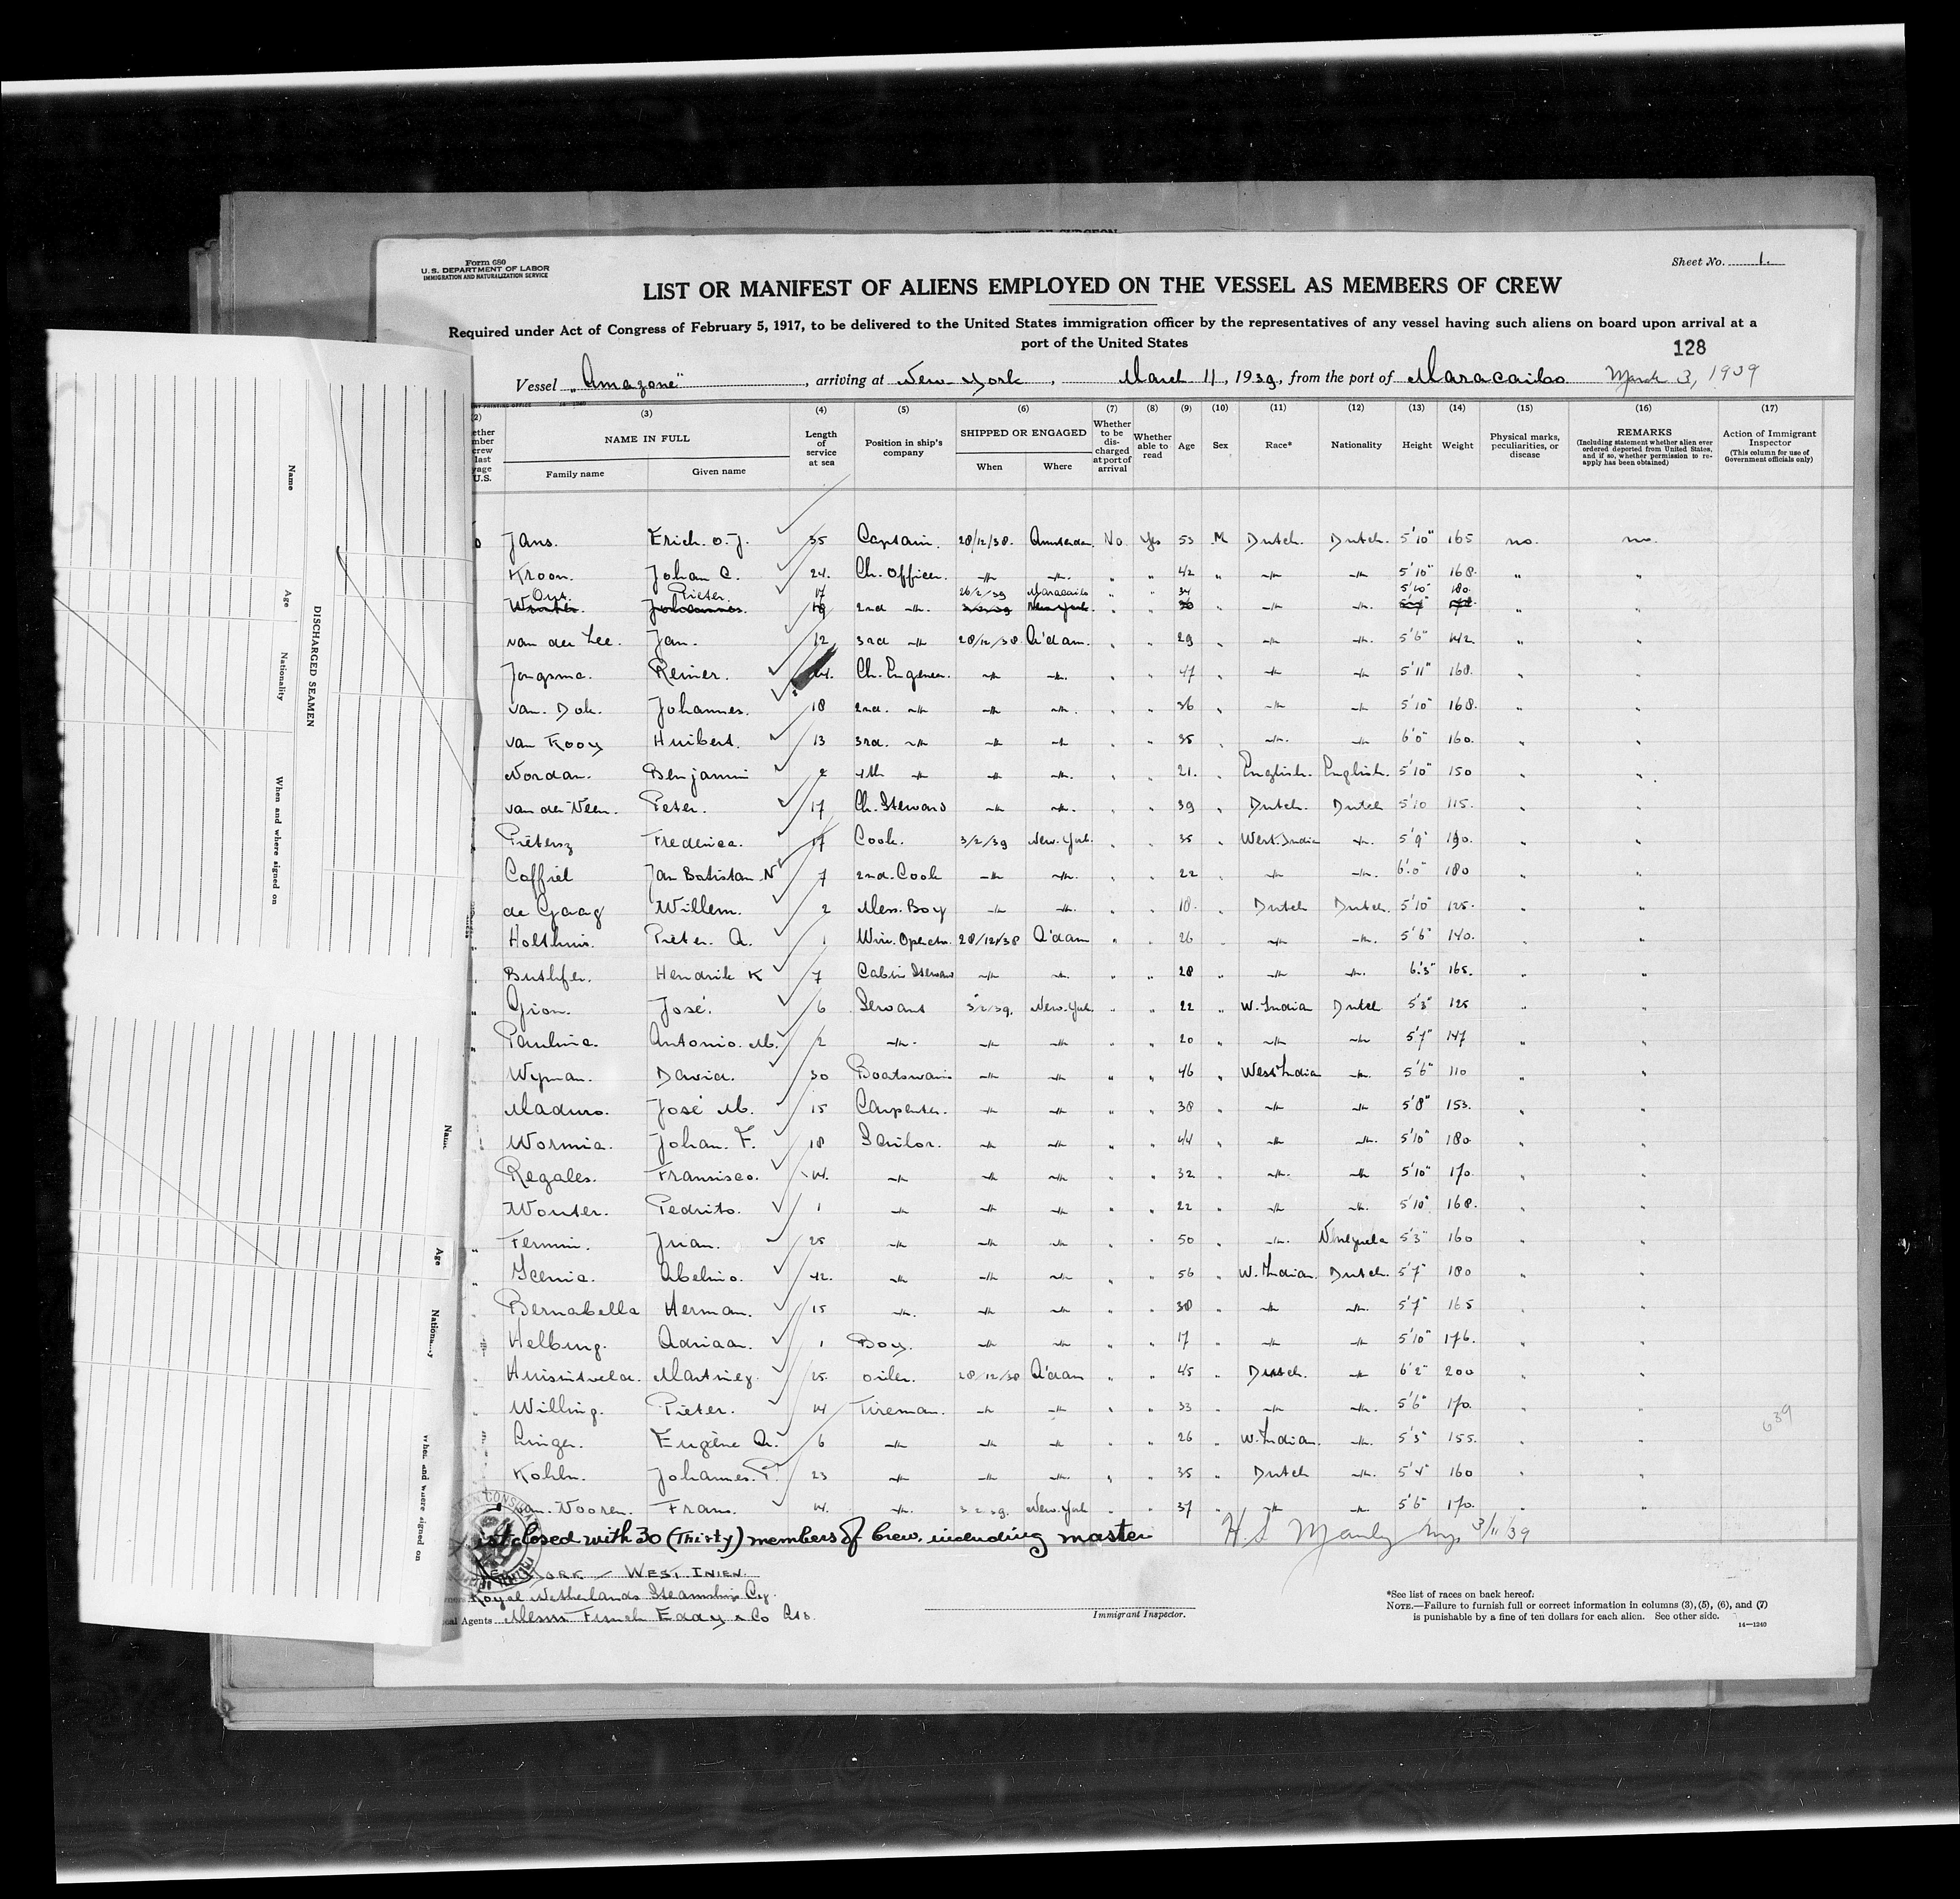 Form 680
U. S. DEPARTMENT OF LABOR
IMMIGRATION AND NATURALIZATION SERVICE
Sheet No. 1.
LIST OR MANIFEST OF ALIENS EMPLOYED ON THE VESSEL AS MEMBERS OF CREW
Required under Act of Congress of February 5, 1917, to be delivered to the United States immigration officer by the representatives of any vessel having such aliens on board upon arrival at a
port of the United States
128
Vessel „Amazone", arriving at New-York, March 11, 1939, from the port of Maracaibo March 3, 1939
(2) (3) (4) (5) (6) (7) (8) (9) (10) (11) (12) (13) (14) (15) (16) (17)
NAME IN FULL Family name Given name Length of service at sea Position in ship's company SHIPPED OR ENGAGED When Where Whether to be discharged at port of arrival Whether able to read Age Sex Race* Nationality Height Weight Physical marks, peculiarities, or disease REMARKS (Including statement whether alien ever ordered deported from United States, and if so, whether permission to reapply has been obtained) Action of Immigrant Inspector (This column for use of Government officials only)
Jans. Erich. O. J. 35 Captain. 28/12/38. Amsterdam. No Yes 53 M Dutch. Dutch. 5'10" 165 no. no.
Kroon. Johan C. 24. Ch. Officer. -"- -"- " " 42 " -"- -"- 5'10" 168. " "
Pieter. 17 26/2/39 Maracaibo 34 5'10" 180.
2nd -"- " " " -"- -"- " "
van der Lee. Jan. 12 3rd -"- 28/12/38 A'dam. " " 29 " -"- -"- 5'6" 142. " "
Jongsma. Reinier. Ch. Engineer. -"- -"- " " 47 " -"- -"- 5'11" 168. " "
van. Dok. Johannes. 18 2nd. -"- -"- -"- " " 36 " -"- -"- 5'10" 168. " "
van Kooy Huibert. 13 3rd. -"- -"- -"- " " 35 " -"- -"- 6'0" 160. " "
Nordan. Benjamin 2 4th -"- -"- -"- " " 21. " English. English. 5'10" 150 " "
van der Veen. Peter. 17 Ch. Steward -"- -"- " " 39 " Dutch. Dutch 5'10 115. " "
Pietersz Frederica. 17 Cook. 3/2/39 New. York. " " 35 " West. India -"- 5'9" 190. " "
Coffiel Jan Batistan N 7 2nd. Cook -"- -"- " " 22 " -"- -"- 6'.0" 180 " "
de Gaag Willem. 2 Mess. Boy -"- -"- " " 18. " Dutch Dutch. 5'10" 125. " "
Holthuis. Pieter. A. 1 28/12/38 A'dam " " 26 " -"- -"- 5'6" 140. " "
Hendrik K 7 Cabin Steward -"- -"- " " 28 " -"- -"- 6'.3" 165. " "
Gion. José. 6 Servant 3/2/39. New. York. " " 22 " W. India Dutch 5'3" 125 " "
Paulina. Antonio. M. 2 -"- -"- -"- " " 20 " -"- -"- 5'7" 147 " "
Wyman. David. 30 Boatswain -"- -"- " " 46 " West India -"- 5'6" 110 " "
Maduro. José M. 15 Carpenter. -"- -"- " " 38 " -"- -"- 5'8" 153. " "
Wormia. Johan. F. 18 Sailor. -"- -"- " " 44 " -"- -"- 5'10" 180. " "
Regales. Fransisco. 14. -"- -"- -"- " " 32 " -"- -"- 5'10" 170. " "
Wouter. Pedrito. 1 -"- -"- -"- " " 22 " -"- -"- 5'10" 168. " "
Fermin. Juan. 25 -"- -"- -"- " " 50 " -"- Venezuela 5'3" 160 " "
Abelino. 42. -"- -"- -"- " " 56 " W. Indian. Dutch. 5'7" 180 " "
Bernabella Herman. 15 -"- -"- -"- " " 38 " -"- -"- 5'7" 165 " "
Helburg. Adriaan. 1 Boy. -"- -"- " " 17 " -"- -"- 5'10" 176. " "
25. oiler. 28/12/38 A'dam " " 45 " Dutch. -"- 6'2" 200 " "
Willing. Pieter. 14 Fireman. -"- -"- " " 33 " -"- -"- 5'6" 170. " "
Linger. Eugène A. 6 -"- -"- -"- " " 26 " W. Indian. -"- 5'3" 155. " "
Kohln. Johannes. P. 23 -"- -"- -"- " " 35 " Dutch -"- 5'4" 160 " "
Vooren. Frans. 14. -"- 3 2 39. New. York " " 37 " -"- -"- 5'6" 170. " "
639
ist closed with 30 (Thirty) members of Crew, including master
H. S. Manly 3/11/39
YORK — WEST. INIEN.
Royal Netherlands Steamship Cy.
Agents Messrs Funch Edye & Co
Immigrant Inspector.
*See list of races on back hereof.
NOTE.—Failure to furnish full or correct information in columns (3), (5), (6), and (7)
is punishable by a fine of ten dollars for each alien. See other side.
14—1240
DISCHARGED SEAMEN
Name Age Nationality When and where signed on
Name Age Nationality When and where signed on